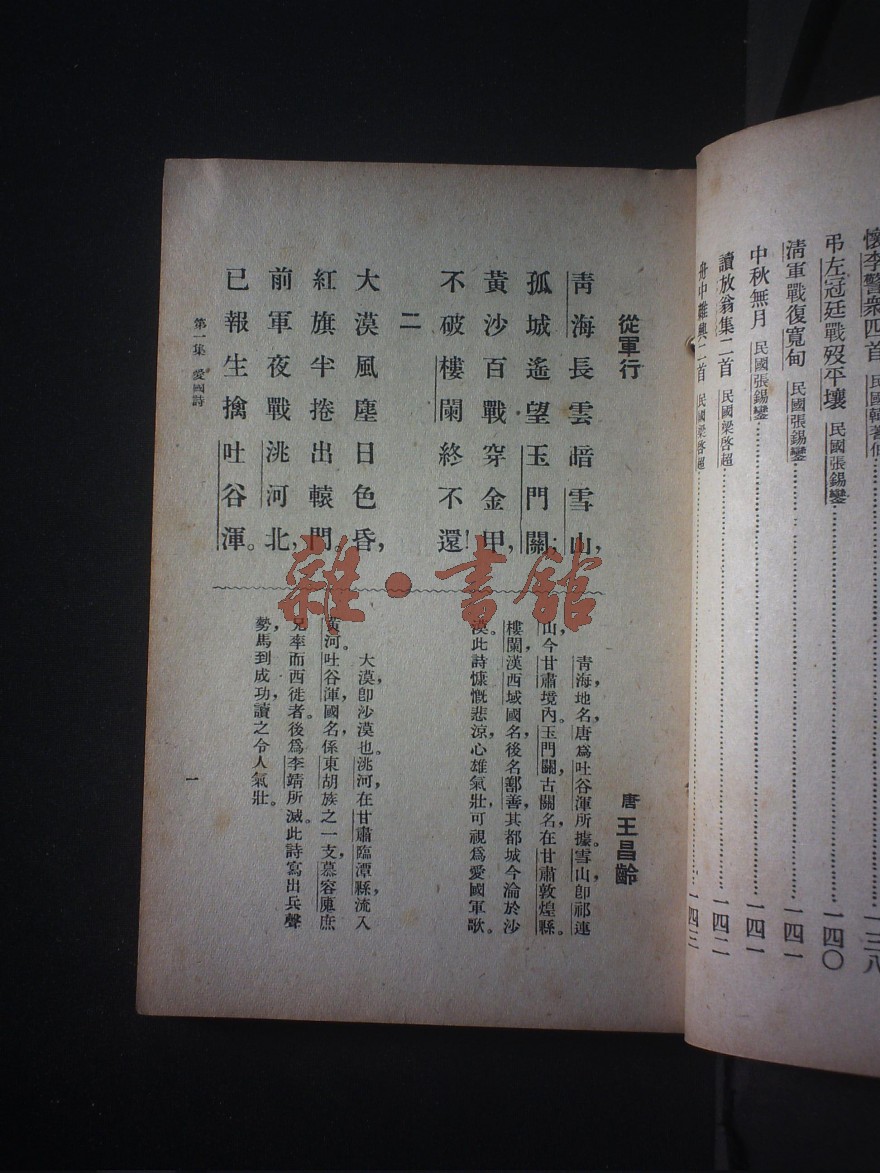 懷李警衆四首 民國韓著伯
一三八
弔左冠廷戰歿平壤 民國張錫鑾
一四〇
清軍戰復寬甸 民國張錫鑾
一四一
中秋無月 民國張錫鑾
一四一
讀放翁集二首 民國梁啓超
一四二
舟中雜興二首 民國梁啓超
一四三
從軍行
唐 王昌齡
靑海長雲暗雪山，
孤城遙望玉門關；
黃沙百戰穿金甲，
不破樓闌終不還！
靑海，地名，唐爲吐谷渾所據。雪山卽祁連
山，今甘肅境內。玉門關，古關名，在甘肅敦煌縣。
樓闌，漢西域國名，後名鄯善，其都城今淪於沙
漠。此詩慷慨悲涼，心雄氣壯，可視爲愛國軍歌。
二
大漠風塵日色昏，
紅旗半捲出轅門。
前軍夜戰洮河北，
已報生擒吐谷渾。
大漠，卽沙漠也。洮河，在甘肅臨潭縣，流入
黃河。吐谷渾，國名，係東胡族之一支，慕容廆庶
兄率而西徙者。後爲李靖所滅。此詩寫出兵聲
勢，馬到成功，讀之令人氣壯。
第一集 愛國詩
一
雜·書舘